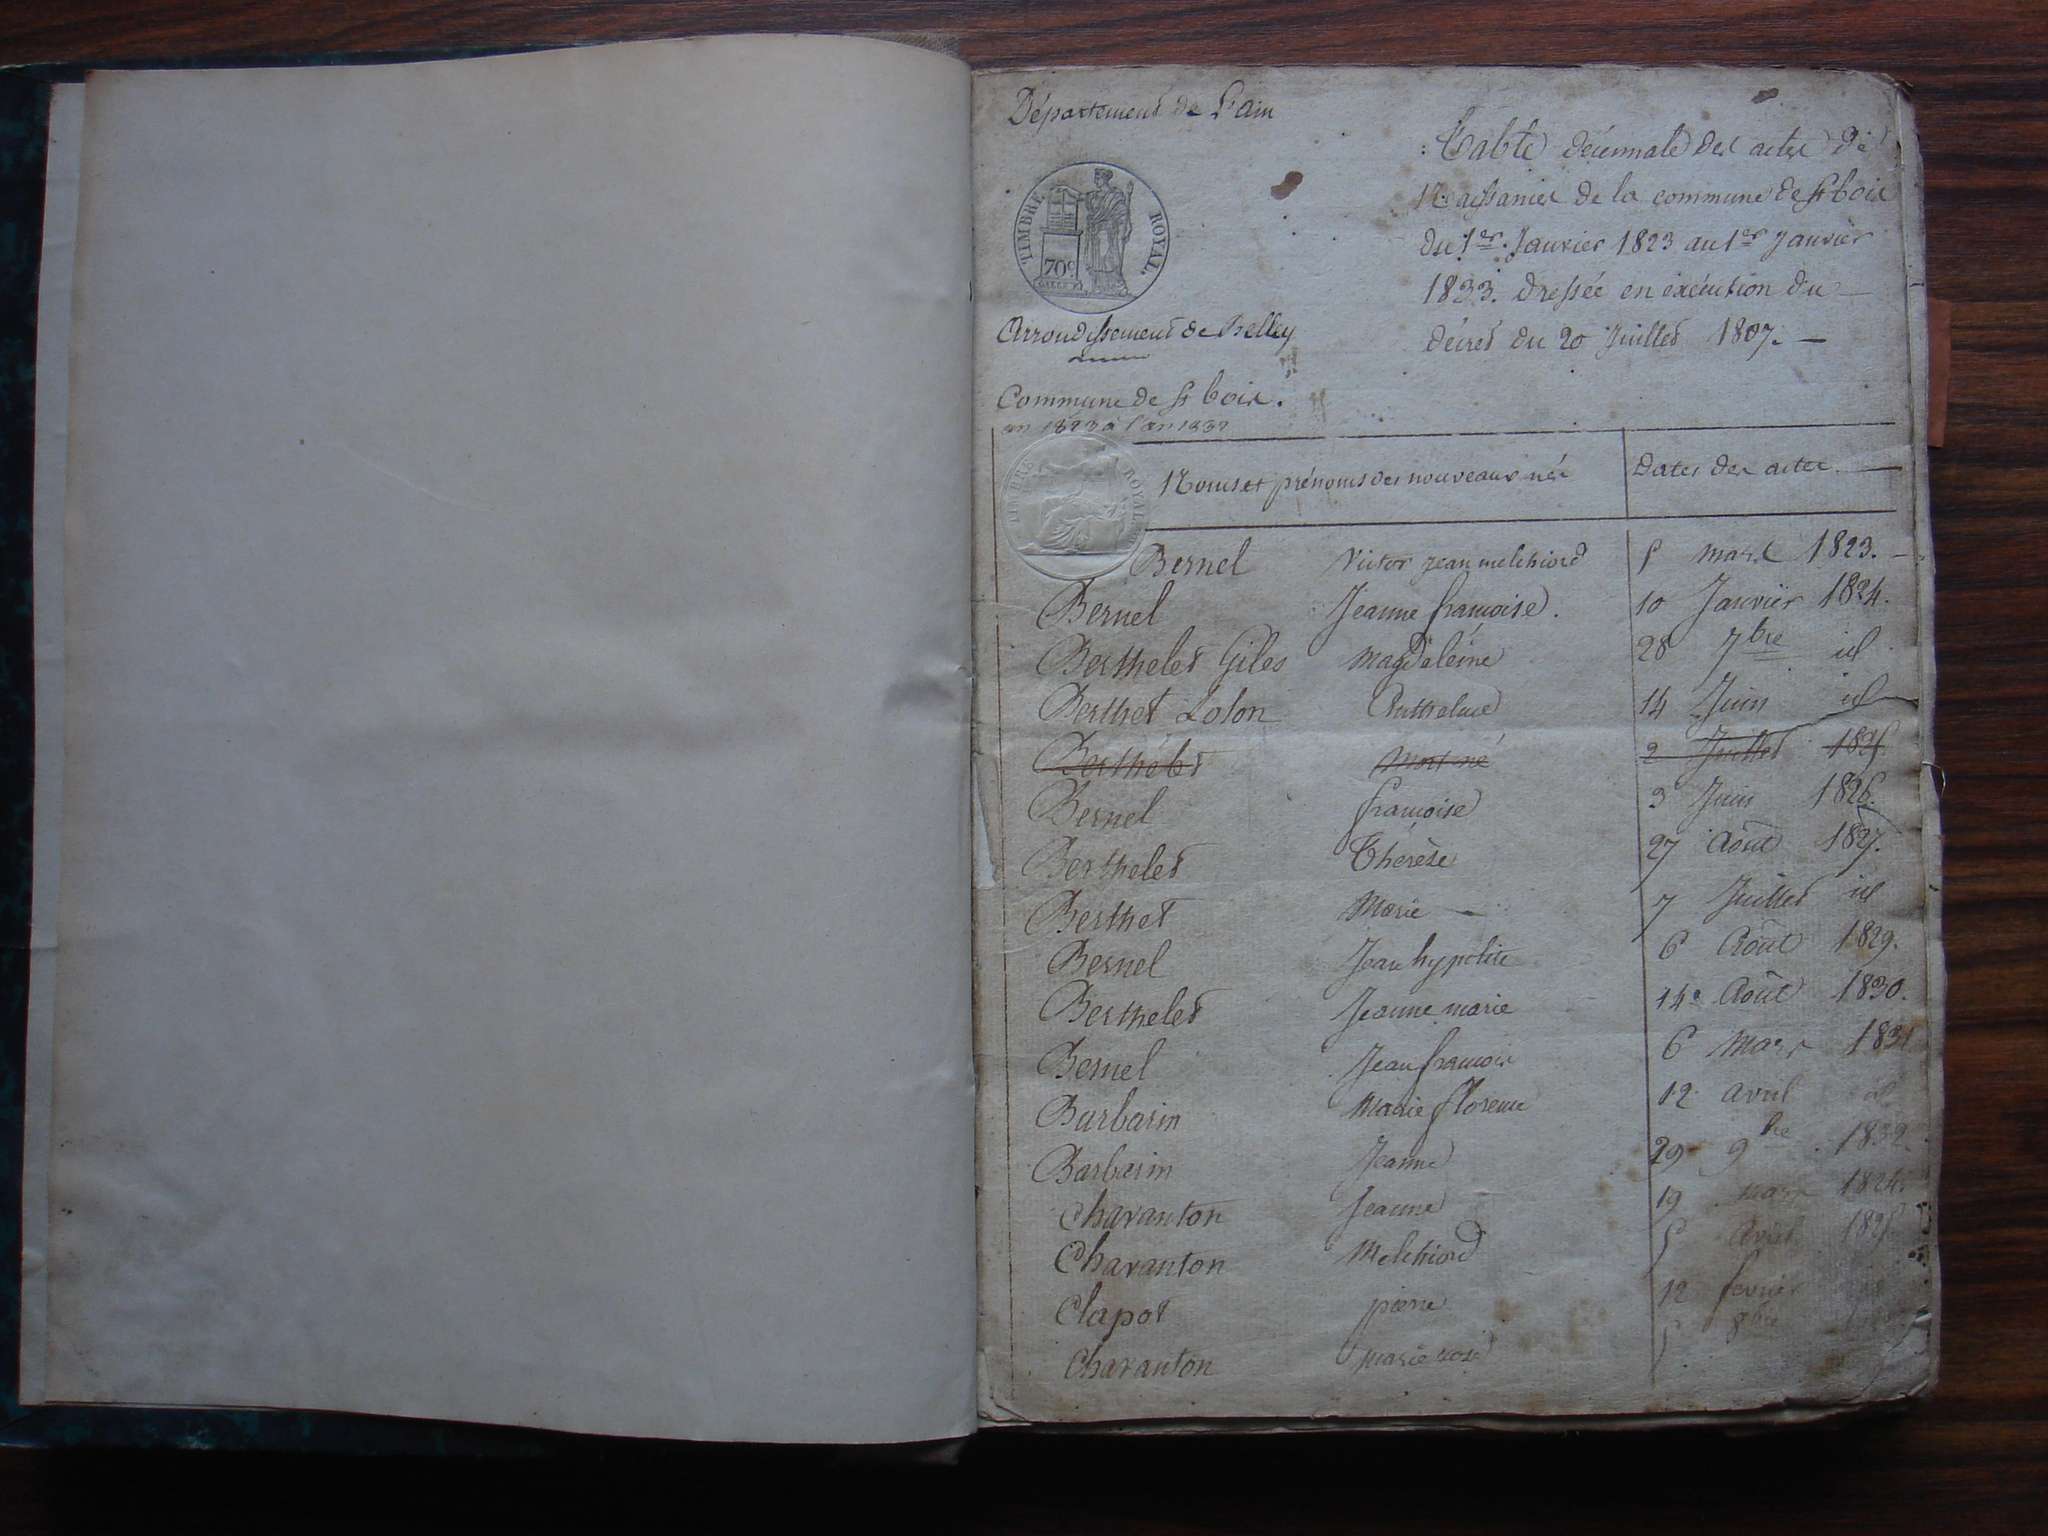 Département de l'ain
TIMBRE ROYAL.
70c
Table décennale des actes de
Naissances de la commune de St bois
du 1er. Janvier 1823 au 1er Janvier
1833. dressée en exécution du
décret du 20 Juillet 1807.
Arrondissement de Belley
Commune de St bois.
an 1823 à l'an 1832
TIMBRE ROYAL
Noms et prénoms des nouveaux nés Dates des actes.
Bernel Victor jean melchiord 5 mars 1823.
Bernel Jeanne françoise. 10 Janvier 1824.
Berthelet Giles Magdeleine 28 7bre id
Berthet Lolon 14 Juin id
Berthelet Mort né 2 Juillet 1825.
Bernel françoise 3 Juin 1826.
Berthelet Thérèse 27 Août 1827.
Berthet Marie 7 Juillet id
Bernel Jean hypolite 6 Août 1829.
Berthelet Jeanne marie 14 Août 1830.
Bernel Jean françois 6 Mars 1831
Barbarin Marie florence 12 avril id
Barberin Jeanne 29 9bre 1832
Charanton Jeanne 19 mars 1824.
Charanton Melchiord 5 avril 1825
Clapot pierre 12 fevrier
Charanton marie rose 5 8bre